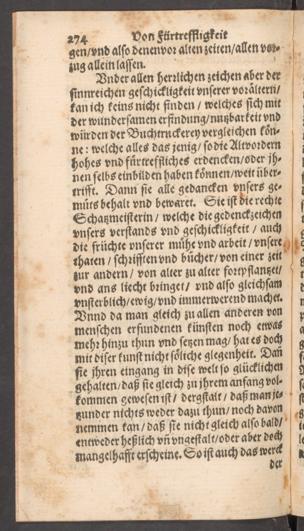 274 Von Fürtreffligkeit
gen/vnd also denen vor alten zeiten/allen vor-
zug allein lassen.
Vnder allen herrlichen zeichen aber der
sinnreichen geschickligkeit vnserer vorältern/
kan ich keins nicht finden / welches sich mit
der wundersamen erfindung/nutzbarkeit vnd
würden der Buchtruckerey vergleichen kön-
ne: welche alles das jenig/so die Altvordern
hohes vnd fürtreffliches erdencken/oder jh-
nen selbs einbilden haben können/weit über-
trifft. Dann sie alle gedancken vnsers ge-
müts behalt vnd bewaret. Sie ist die rechte
Schatzmeisterin / welche die gedenckzeichen
vnsers verstands vnd geschickligkeit / auch
die früchte vnserer mühe vnd arbeit / vnsere
thaten / schrifften vnd bücher/ von einer zeit
zur andern / von alter zu alter fortpflantzet/
vnd ans liecht bringet/ vnd also gleichsam
vnsterblich/ewig/vnd immerwerend machet.
Vnnd da man gleich zu allen anderen von
menschen erfundenen künsten noch etwas
mehr hinzu thun vnd setzen mag/hat es doch
mit diser kunst nicht sóliche gelegenheit. Dañ
sie jhren eingang in dise welt so glücklichen
gehalten/daß sie gleich zu jhrem anfang vol-
kommen gewesen ist / dergstalt / daß man je-
tzunder nichts weder dazu thun/noch davon
nemmen kan / daß sie nicht gleich also bald/
entweder heßlich vñ vngestalt/oder aber doch
mangelhafft erscheine. So ist auch das werck
der